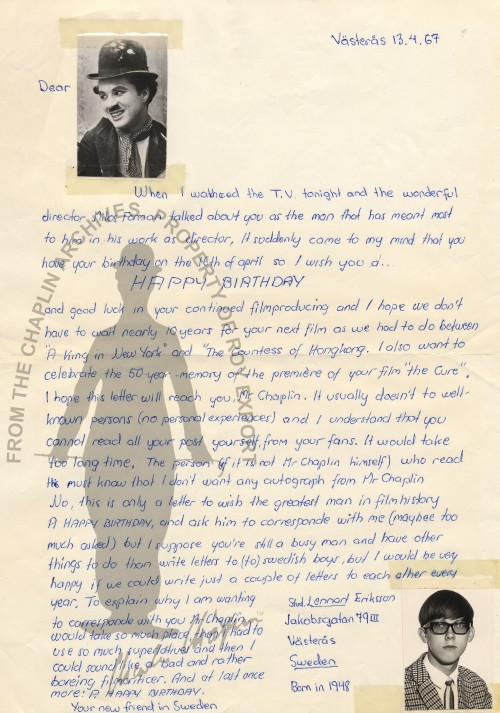 Västerås 13.4.67
Dear
When I watheed the T.V. tonight and the wonderful
director, Milos Forman talked about you as the man that has meant most
to him in his work as director, it suddenly came to my mind that you
have your birthday on the 16th of april so I wish you a...
HAPPY BIRTHDAY
and good luck in your continued filmproducing and I hope we don't
have to wait nearly 10 years for your next film as we had to do between
"A King in New York" and "The Countess of Hongkong. I also want to
celebrate the 50-year-memory of the première of your film "the Cure".
I hope this letter will reach you, Mr Chaplin. It usually doesn't to well-
known persons (no personal experiences) and I understand that you
cannot read all your post yourself, from your fans. It would take
too long time. The person (if it is not Mr Chaplin himself) who read
must know that I don't want any autograph from Mr Chaplin
No, this is only a letter to wish the greatest man in filmhistory
A HAPPY BIRTHDAY, and ask him to corresponde with me (maybee too
much asked) but I suppose you're still a busy man and have other
things to do than write letters to (to) swedish boys, but I would be very
happy if we could write just a couple of letters to each other every
year. To explain why I am wanting
to corresponde with you Mr Chaplin
would take so much place, then I had to
use so much superlatives and then I
could sound like a bad and rather
boreing filmcriticer. And at last once
more: A HAPPY BIRTHDAY.
Your new friend in Sweden
Stud. Lennart Eriksson
Jakobsgatan 79 III
Västerås
Sweden
Born in 1948
FROM THE CHAPLIN ARCHIVES - PROPERTY OF ROY EXPORT
Charlie Chaplin